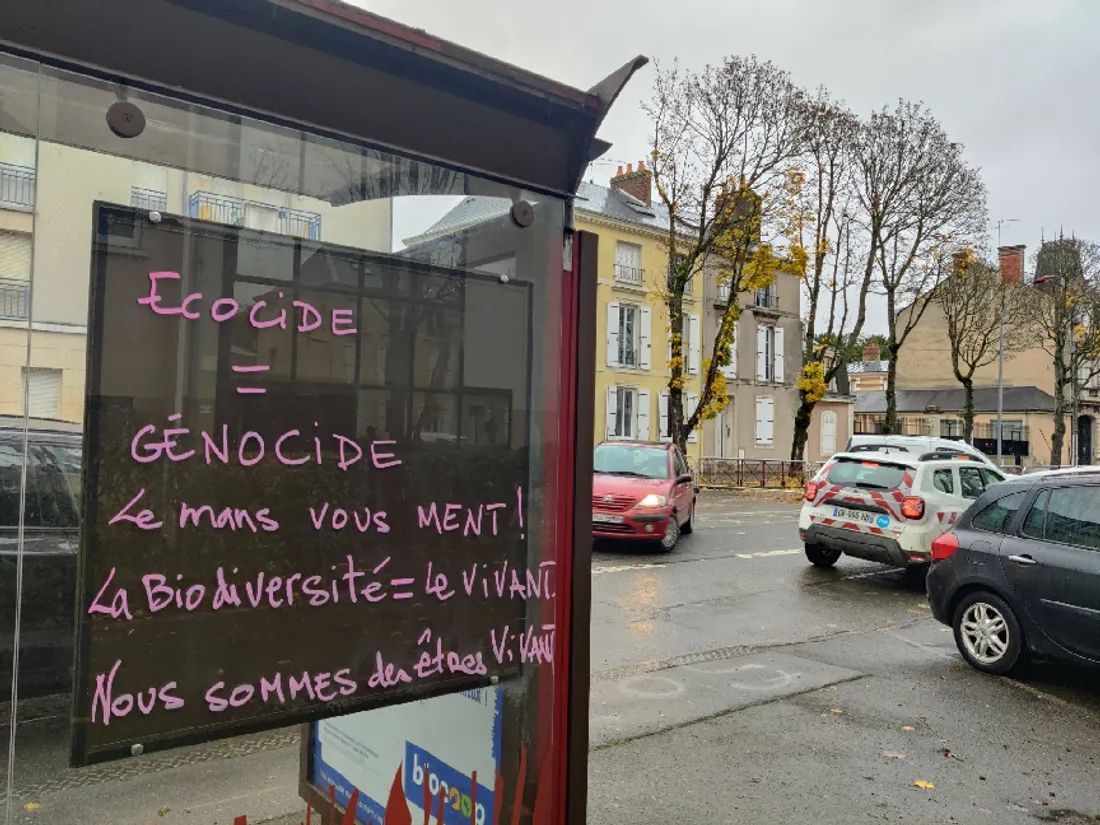 ECOCiDE
=
GÉNOCiDE
Le mans vous MENT !
La Biodiversité = Le ViVANT.
Nous sommes des êtres ViVANT
biocoop